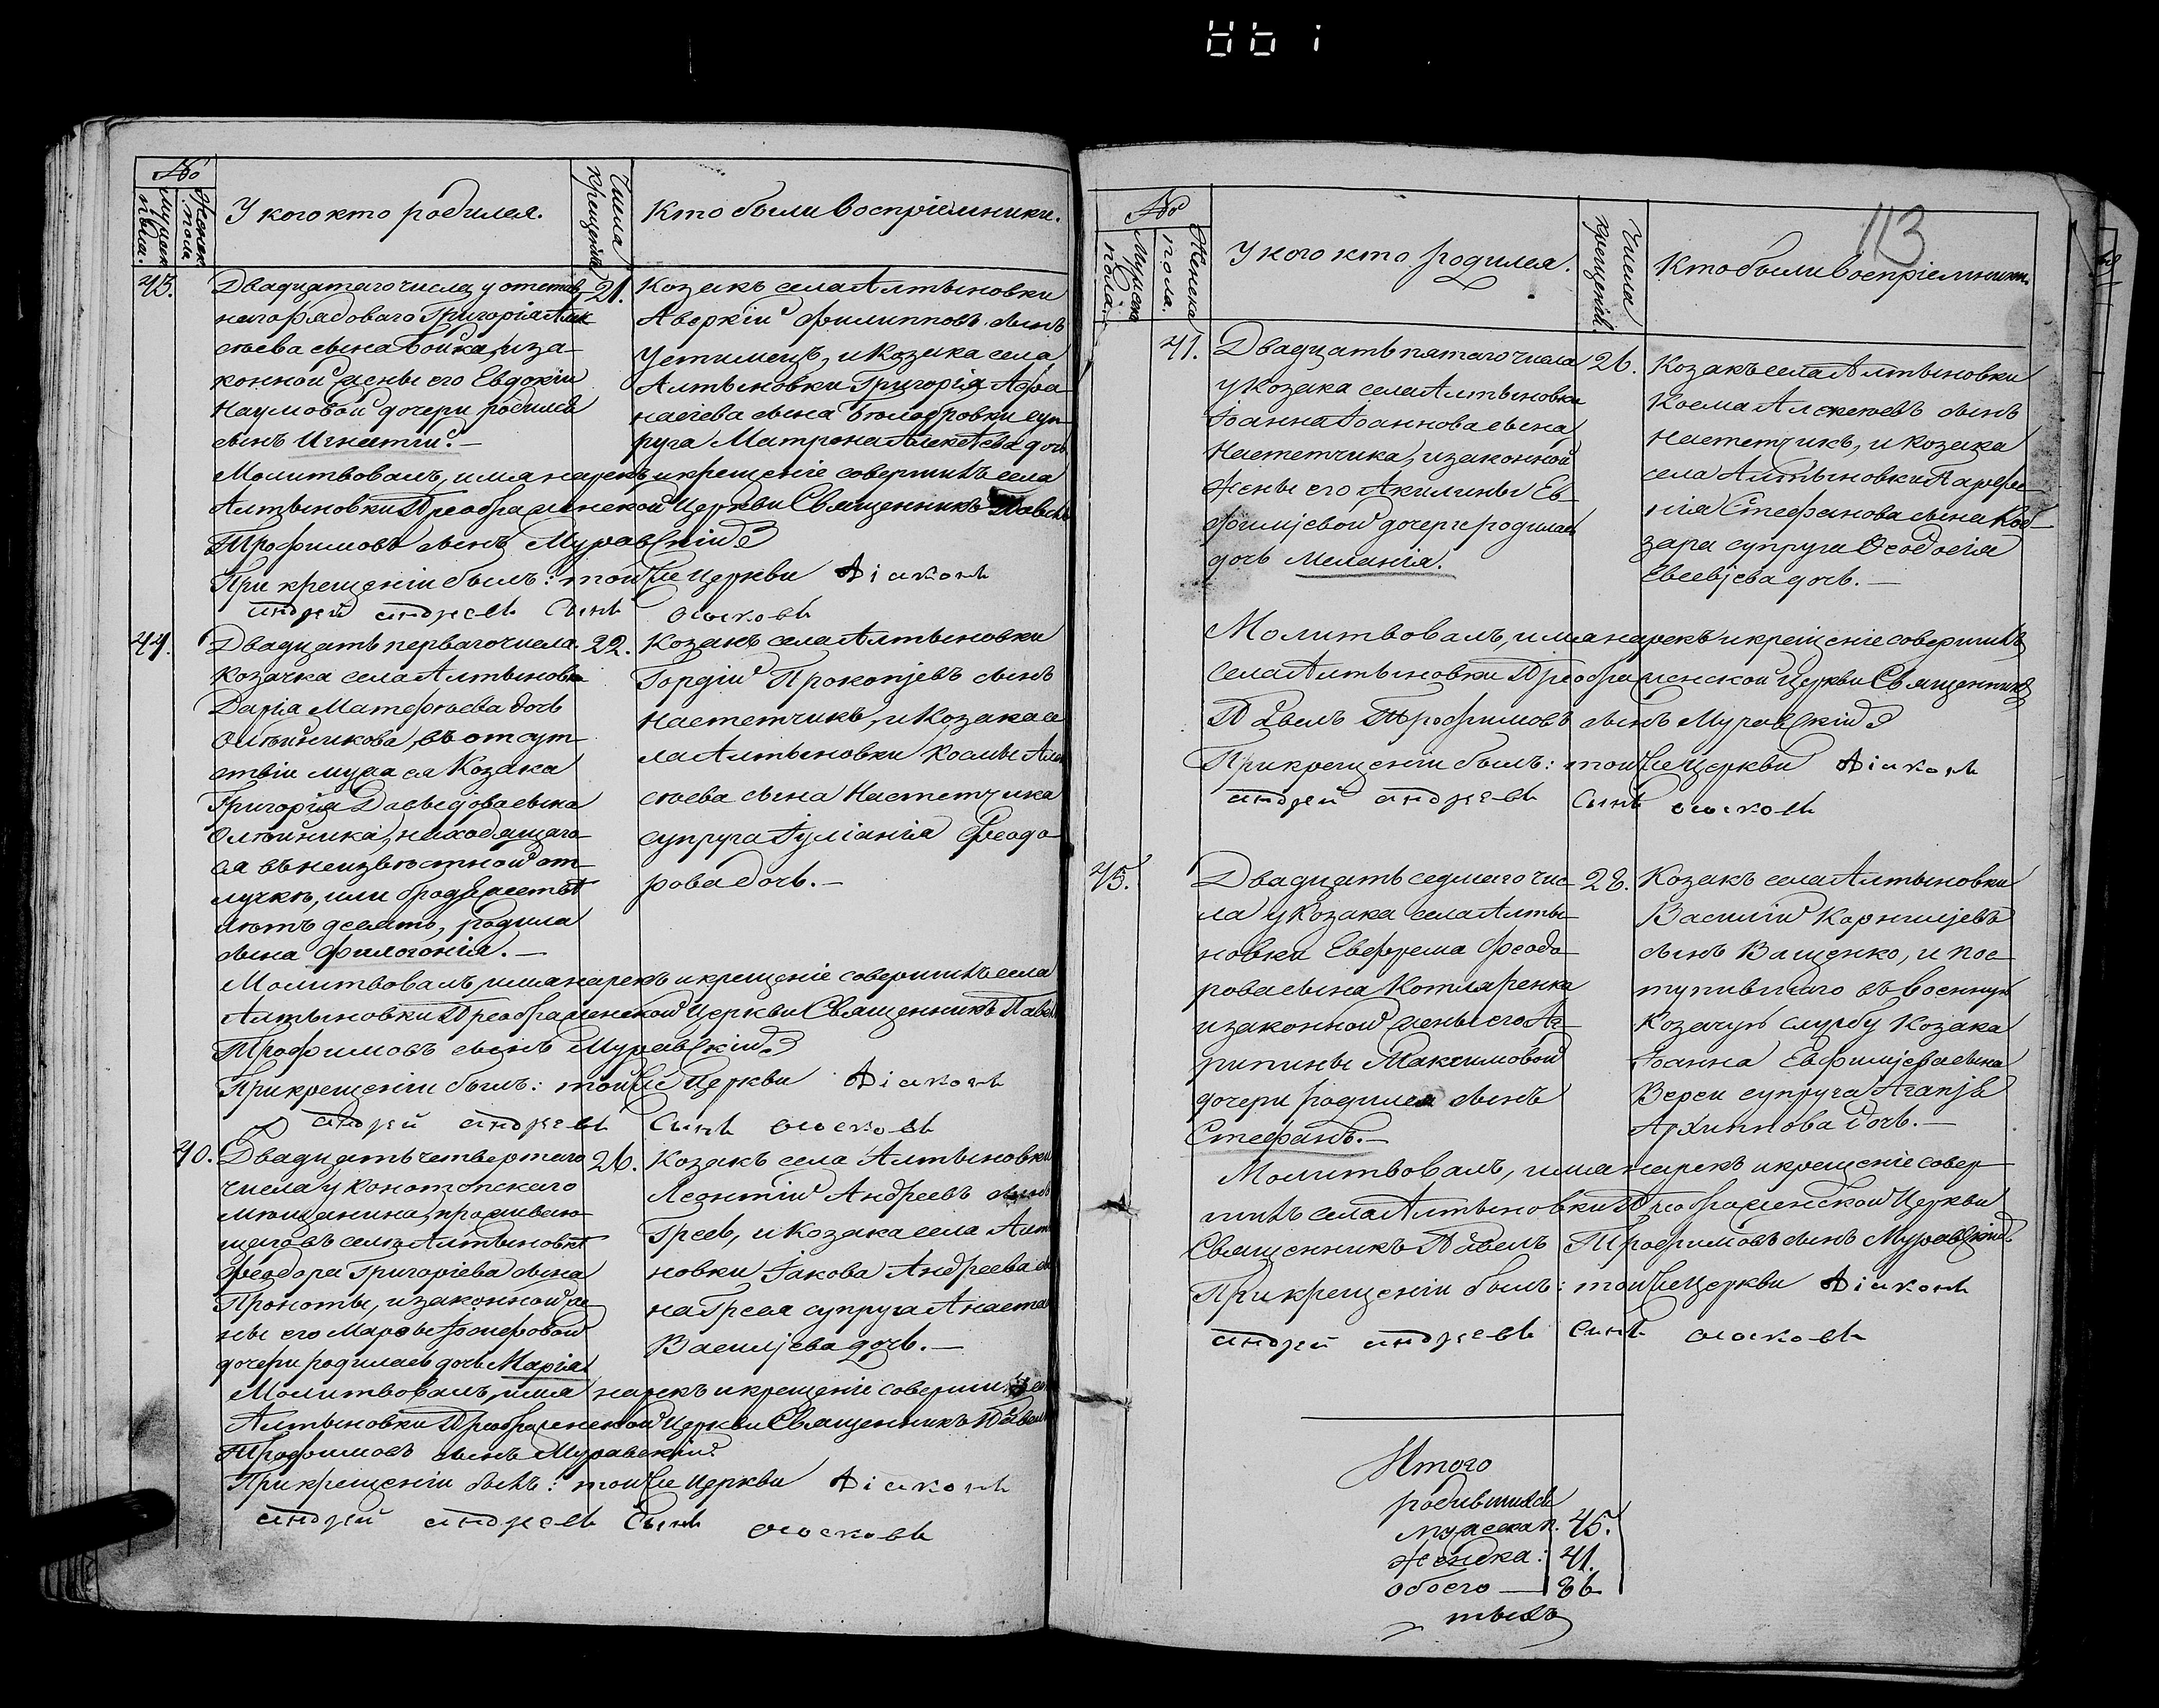 113
№
Мужеск. пола.
Женск. пола
У кого кто родился.
Числа крещенія
Кто были воспріемники.
43.
Двадцатаго числа у отстав-
наго рядоваго Григорія Алек
сѣева сына Бойка, и за-
конной жены его Евдокіи
Наумовой дочери родился
сынъ Игнатій.—
21.
Козакъ села Алтыновки
Аверкій Филипповъ сынъ
Устимецъ, и козака села
Алтыновки Григорія Афа-
насіева сына Бѣлобровки суп-
руга Матрона Алексѣева дочь
Молитвовалъ, имя нарекъ и крещеніе совершилъ села
Алтыновки Преображенской Церкви Священникъ Павелъ
Трофимовъ сынъ Муравскій
При крещеніи былъ: той же Церкви Діаконъ
андрей андреевъ Сынъ
44.
Двадцать перваго числа
Козачка села Алтыновки
Дарія Матефѣева дочь
Олѣйникова, въ отсут-
ствіи мужа ея Козака
Григорія Давыдова сына
Олѣйника, находящаго-
ся въ неизвѣстной от-
лучкѣ, или бродяжествѣ
лѣтъ десять, родила
сына Филогонія.—
22.
Козакъ села Алтыновки
Гордій Прокопьевъ сынъ
Настетчикъ, и Козака се
ла Алтыновки Космы Але
сѣева сына Настетчика
супруга Іуліанія Феодо-
рова дочь.—
Молитвовалъ, имя нарекъ и крещеніе совершилъ села
Алтыновки Преображенской Церкви Священникъ Павелъ
Трофимовъ сынъ Муравскій
При крещеніи былъ: той же Церкви Діаконъ
андрей андреевъ Сынъ
40.
Двадцать четвертаго
числа у конотопскаго
мѣщанина, проживаю-
щаго въ селѣ Алтыновкѣ
Феодора Григоріева сына
Проноты, и законной же
ны его Марѳы Іосифовой
дочери родилась дочь Марія
26.
Козакъ села Алтыновки
Леонтій Андреевъ сынъ
Гресь, и Козака села Алт
новки Іакова Андреева сы
на Греся супруга Анаста
Васильева дочь.—
Молитвовалъ, имя нарекъ и крещеніе совершилъ
Алтыновки Преображенской Церкви Священникъ Павелъ
Трофимовъ сынъ Муравскій
При крещеніи былъ: той же Церкви Діаконъ
андрей андреевъ Сынъ
№
Мужеска пола.
Женска пола.
У кого кто родился.
Числа крещенія.
Кто были воспріемники.
41.
Двадцать пятаго числа
у козака села Алтыновки
Іоанна Іоаннова сына
Настетчика, и законной
жены его Акилины Ев-
фимьевой дочери родилась
дочь Меланія.
26.
Козакъ села Алтыновки
Косма Алексѣевъ сынъ
Настетчикъ, и козака
села Алтыновки Парфе-
нія Стефанова сына Коб-
заря супруга Ѳеодосія
Евсевьева дочь.—
Молитвовалъ, имя нарекъ и крещеніе совершилъ
села Алтыновки Преображенской Церкви Священникъ
Павелъ Трофимовъ сынъ Муравскій
При крещеніи былъ: той же Церкви Діаконъ
андрей андреевъ Сынъ
45.
Двадцать седмаго чис-
ла у козака села Алты-
новки Евфрема Феодо-
рова сына Котляренка
и законной жены его Аг-
рипины Максимовой
дочери родился сынъ
Стефанъ.—
28.
Козакъ села Алтыновки
Василій Корнильевъ
сынъ Ващенко, и пос-
тупившаго въ военную
Козачую службу Козака
Іоанна Евфимьева сына
Вереи супруга Агапья
Архиппова дочь.—
Молитвовалъ, имя нарекъ и крещеніе совер-
шилъ села Алтыновки Преображенской Церкви
Священникъ Павелъ Трофимовъ сынъ Муравскій
При крещеніи былъ: той же Церкви Діаконъ
андрей андреевъ Сынъ
Итого
родившихся
мужеска п. 45.
женска: 41.
обоего — 86